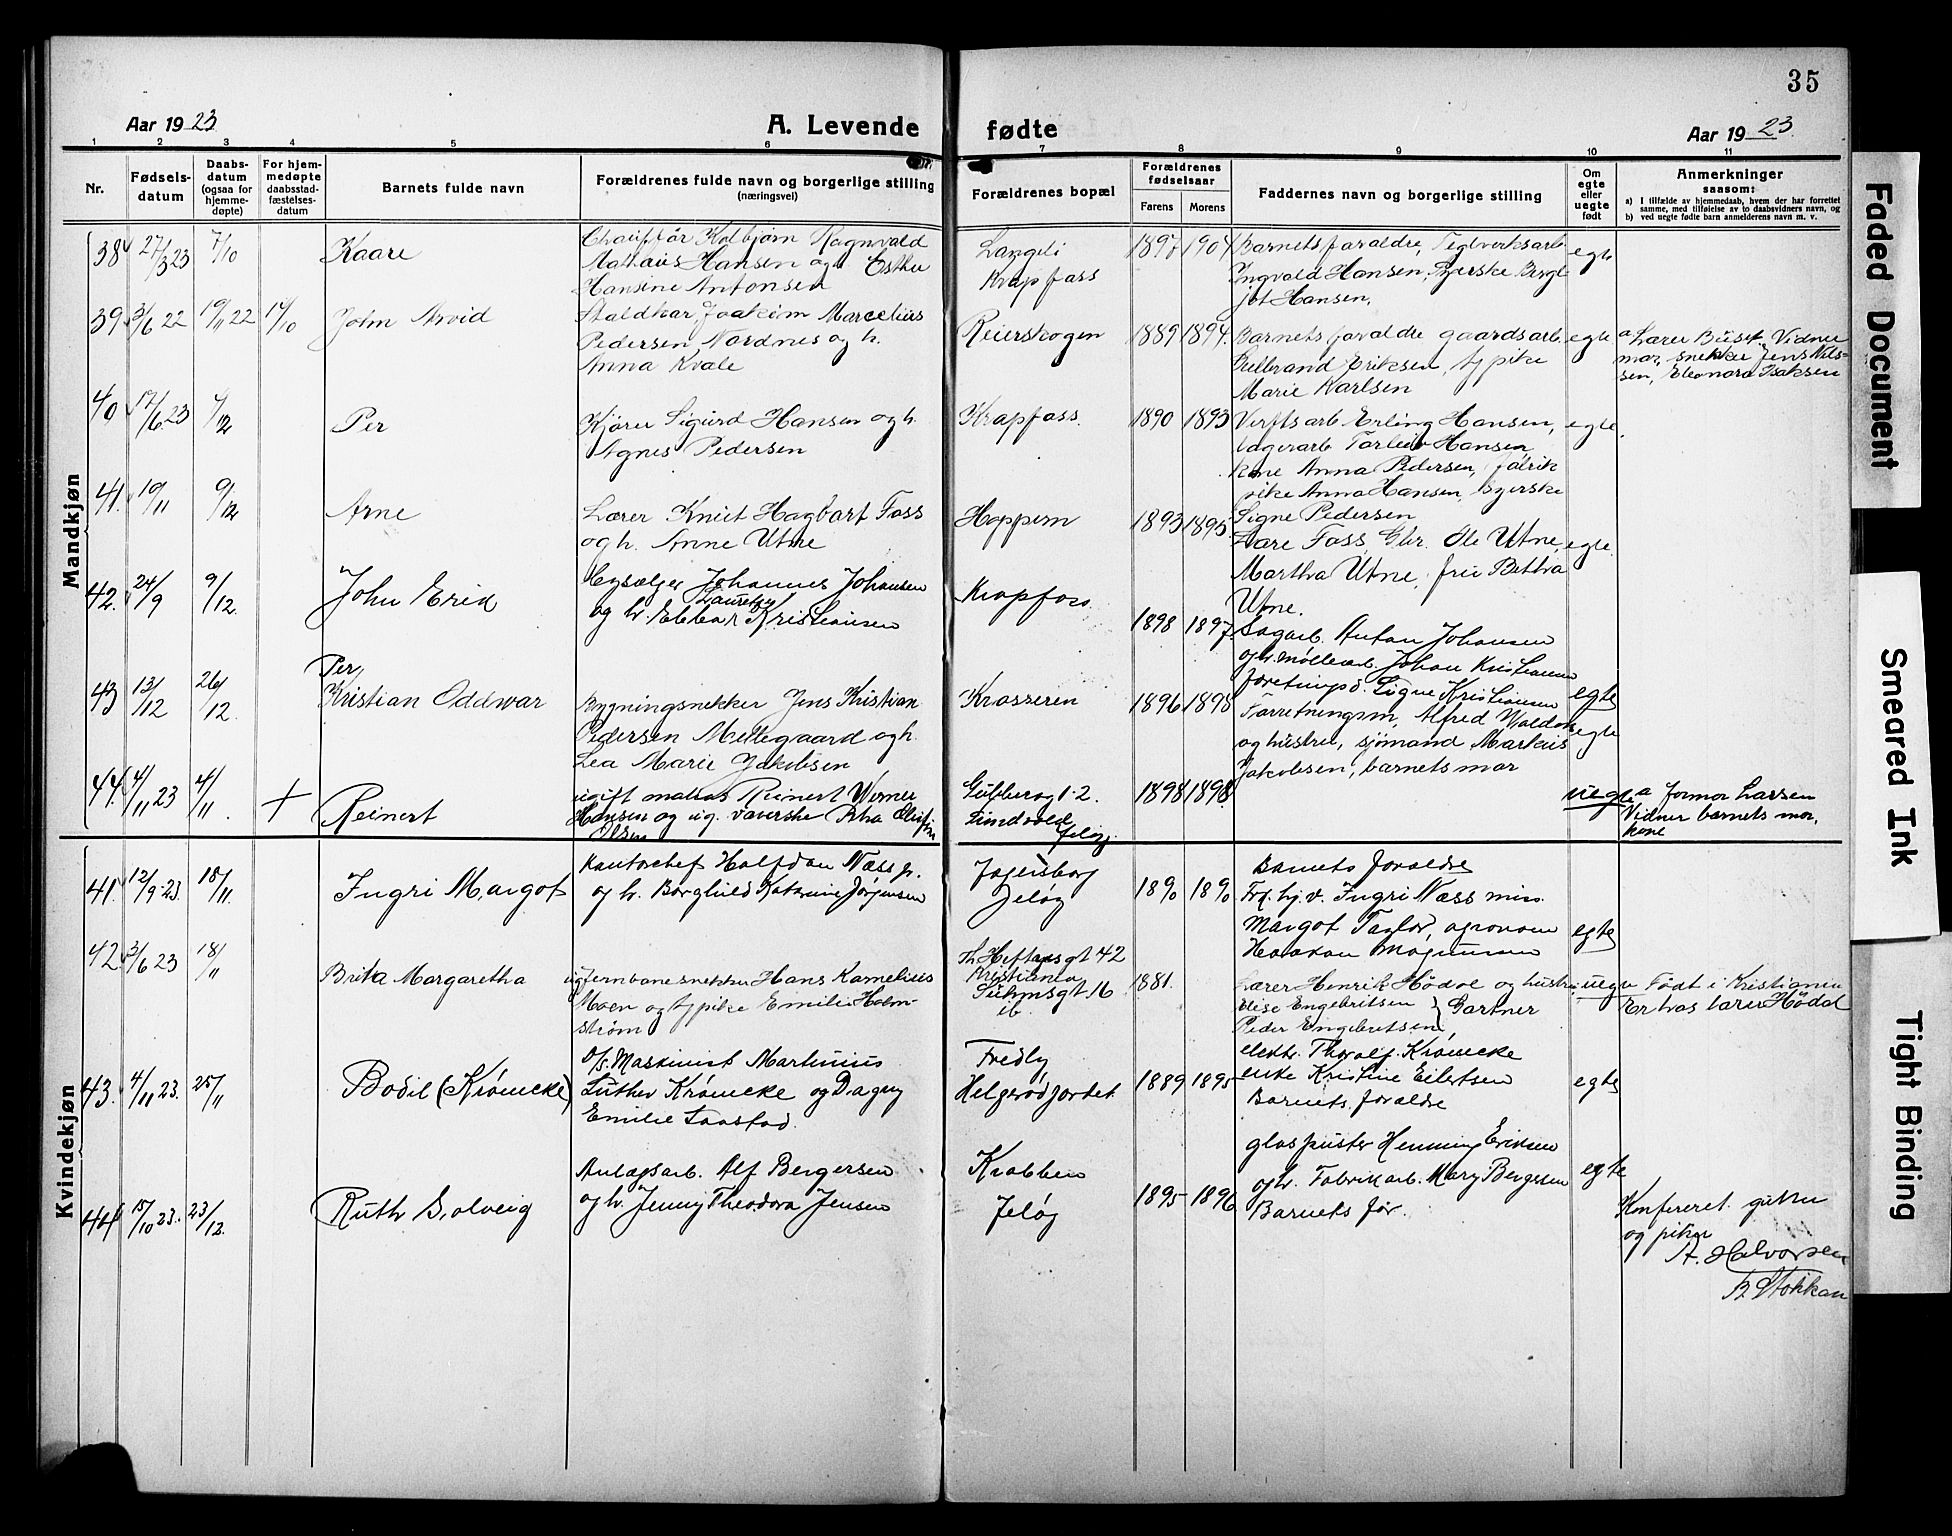 35
Aar 1923
A. Levende
fødte
Aar 1923.
1 2 3 4 5 6 7 8 9 10 11
Nr.
Fødsels-
datum
Daabs-
datum
(ogsaa for
hjemme-
døpte)
For hjem-
medøpte
daabsstad-
fæstelses-
datum
Barnets fulde navn
Forældrenes fulde navn og borgerlige stilling
(næringsvei)
Forældrenes bopæl
Forældrenes
fødselsaar
Farens
Morens
Faddernes navn og borgerlige stilling
Om
egte
eller
uegte
født
Anmerkninger
saasom:
a) I tilfælde av hjemmedaab, hvem der har forrettet
samme, med tilføielse av to daabsvidners navn, og
b) ved uegte fødte barn anmelderens navn m. v.
Mandkjøn
38 27/3 23 7/10 Kaare
Chauffør Kolbjørn Ragnvald
Hansen og Esther
Hansine Antonsen
Langeli
Krapfoss
1897 1904
Barnets foraldre, Teglverksarb
Ingvald Hansen, Syerske Bergl
jot Hansen,
egte
39 3/6 22 19/11 22 14/10 John Arvid
Staldkar Joakim Marcelius
Pedersen Nordnes og h.
Anna Kvale
Reierskogen
1889 1894.
Barnets foraldre gaardsarb.
Gulbrand Eriksen, typike
Marie Karlsen
egte
a Lærer Buset. Vidner
mor, snekker Jens Nils-
sen, Eleonora Isaksen
40 17/6 23 2/12 Per
Kjører Sigurd Hansen og h.
Agnes Pedersen
Krapfoss.
1890 1893
Verftsarb Erling Hansen,
lagerarb Torleiv Hansen
kone Anna Pedersen, fabrik
pike Anna Hansen, Syerske
Signe Pedersen
egte
41. 19/11 9/12 Arne
Lærer Knut Hagbart Foss
og h. Anne Utne
Hoppern
1893 1895.
Lære Foss, Gbr. Ole Utne,
Martha Utne, fru Betha
Utne.
egte.
42. 24/9 9/12. John Erik
Johannes Johansen
og h. Ebba Lauretze Kristiansen
Krapfoss.
1898 1897
Sagarb. Anton Johansen
og h. Møllearb. Johan Kristiansen
foretningsd. Signe Kristiansen
egte
43 13/12 26/12. Per,
Kristian Oddvar
Bygningsnekker Jens Kristian
Pedersen Mellegaard og h.
Lea Marie Jakobsen
Krosseren
1896 1898
Forretningsm. Alfred
og hustru, sjømand Markus
Jakobsen, barnets mor
egte
44. 4/11 23 4/11. + Reinert
ugift matros Reinert Werner
Hansen og ug. væverske
Olsen
1-2.
Jeløy.
1898 1898
uegte
a Jormor Larsen
Vidner barnets mor.
kone
Kvindekjøn
41. 12/9 23. 18/11. Ingri Margot
Kontorchef Halfdan Næss jr.
og h. Borghild Katrine Jørgensen
Jeløy
1890 1890
Barnets foraldre
Frk. Ingri Næss miss.
Margot Taylor, agronom
Haakon Magnussen
egte
42. 3/6 23 18/11 Brita Margaretha
ug jernbanesnekker Hans Kornelius
Moen og typike Emilie Holm-
strøm
Th. Heftyes gt 42
Kristiania
Suhmsgt. 16
ib.
1881.
Lærer Henrik Hødal og hustru
Elise Engebritsen } Gartner
Peder Engebretsen,
uegte
Født i Kristiania
Er hos lærer Hødal
43. 4/11 23. 25/11 Bodil (Krömcke)
D/S. Maskinist Martinius
Luther Krömcke og Dagny
Emilie Taastad.
Fredly,
Helgerødjordet.
1889 1895
elektr. Thoralf. Krömcke
enke Kristine Eilertsen
Barnets foraldre
egte
44 15/10 23. 23/12. Ruth Solveig
Anlægsarb. Alf Bergersen
og h. Jenny Theodora Jensen
Krabben
Jeløy
1895 1896
glaspuster Henning Eriksen
og h. Fabrikarb. Mary Bergersen
Barnets for.
egte
Konfereret gutter
og piker
A. Halvorsen
B. Stokkan
Faded Document
Smeared Ink
Tight Binding